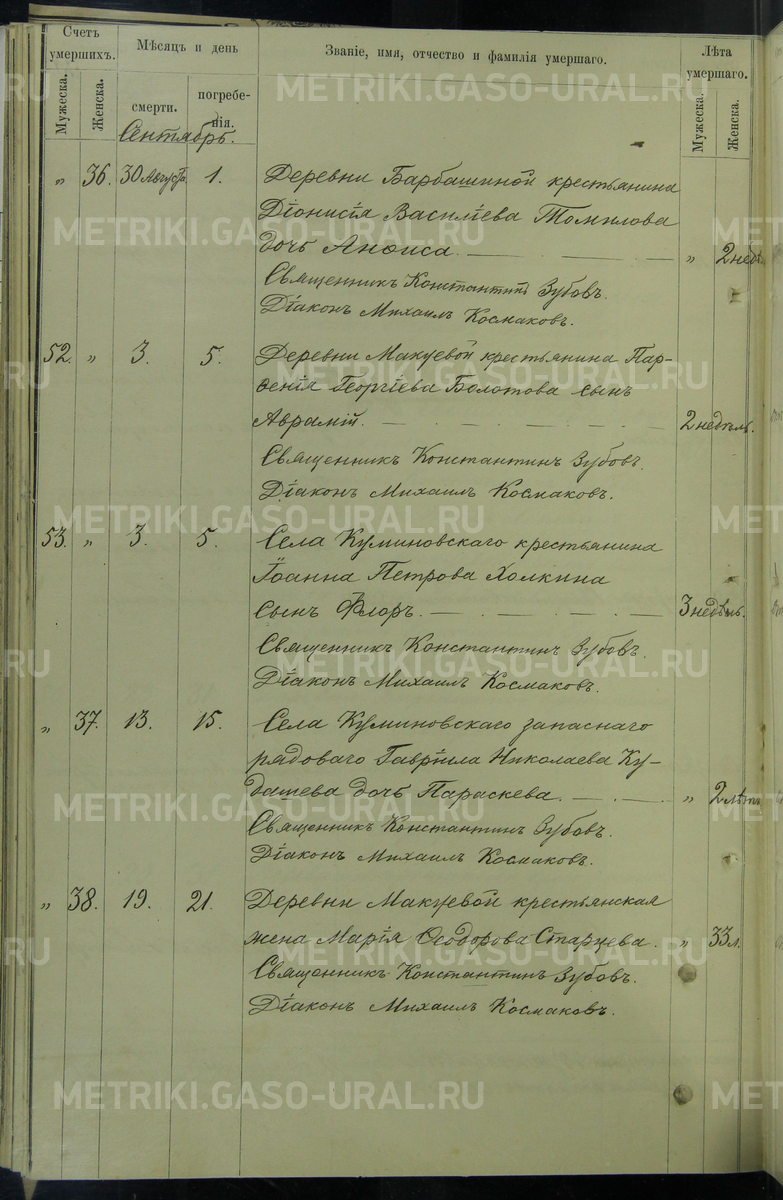 Счетъ умершихъ.
Мѣсяцъ и день
Званіе, имя, отчество и фамилія умершаго.
Лѣта умершаго.
Мужеска.
Женска.
смерти.
погребе-
нія.
Мужеска.
Женска.
Сентябрь.
„ 36. 30 Августа. 1. Деревни Барбашиной крестьянина
Діонисія Василіева Томилова
дочь Анѳиса. „ 2 нед.
Священникъ Константинъ Зубовъ.
Діаконъ Михаилъ Космаковъ.
52. „ 3. 5. Деревни Макуевой крестьянина Пар-
ѳенія Георгіева Болотова сынъ
Аврамій. 2 недѣль.
Священникъ Константинъ Зубовъ.
Діаконъ Михаилъ Космаковъ.
53. „ 3. 5. Села Куминовскаго крестьянина
Іоанна Петрова Холкина
сынъ Флоръ. 3 недѣль.
Священникъ Константинъ Зубовъ.
Діаконъ Михаилъ Космаковъ.
„ 37. 13. 15. Села Куминовскаго запаснаго
рядоваго Гавріила Николаева Ку-
дашева дочь Параскева. „ 2 лѣтъ
Священникъ Константинъ Зубовъ.
Діаконъ Михаилъ Космаковъ.
„ 38. 19. 21. Деревни Макуевой крестьянская
жена Марія Ѳеодорова Старцева. „ 33 л.
Священникъ Константинъ Зубовъ.
Діаконъ Михаилъ Космаковъ.
METRIKI.GASO-URAL.RU